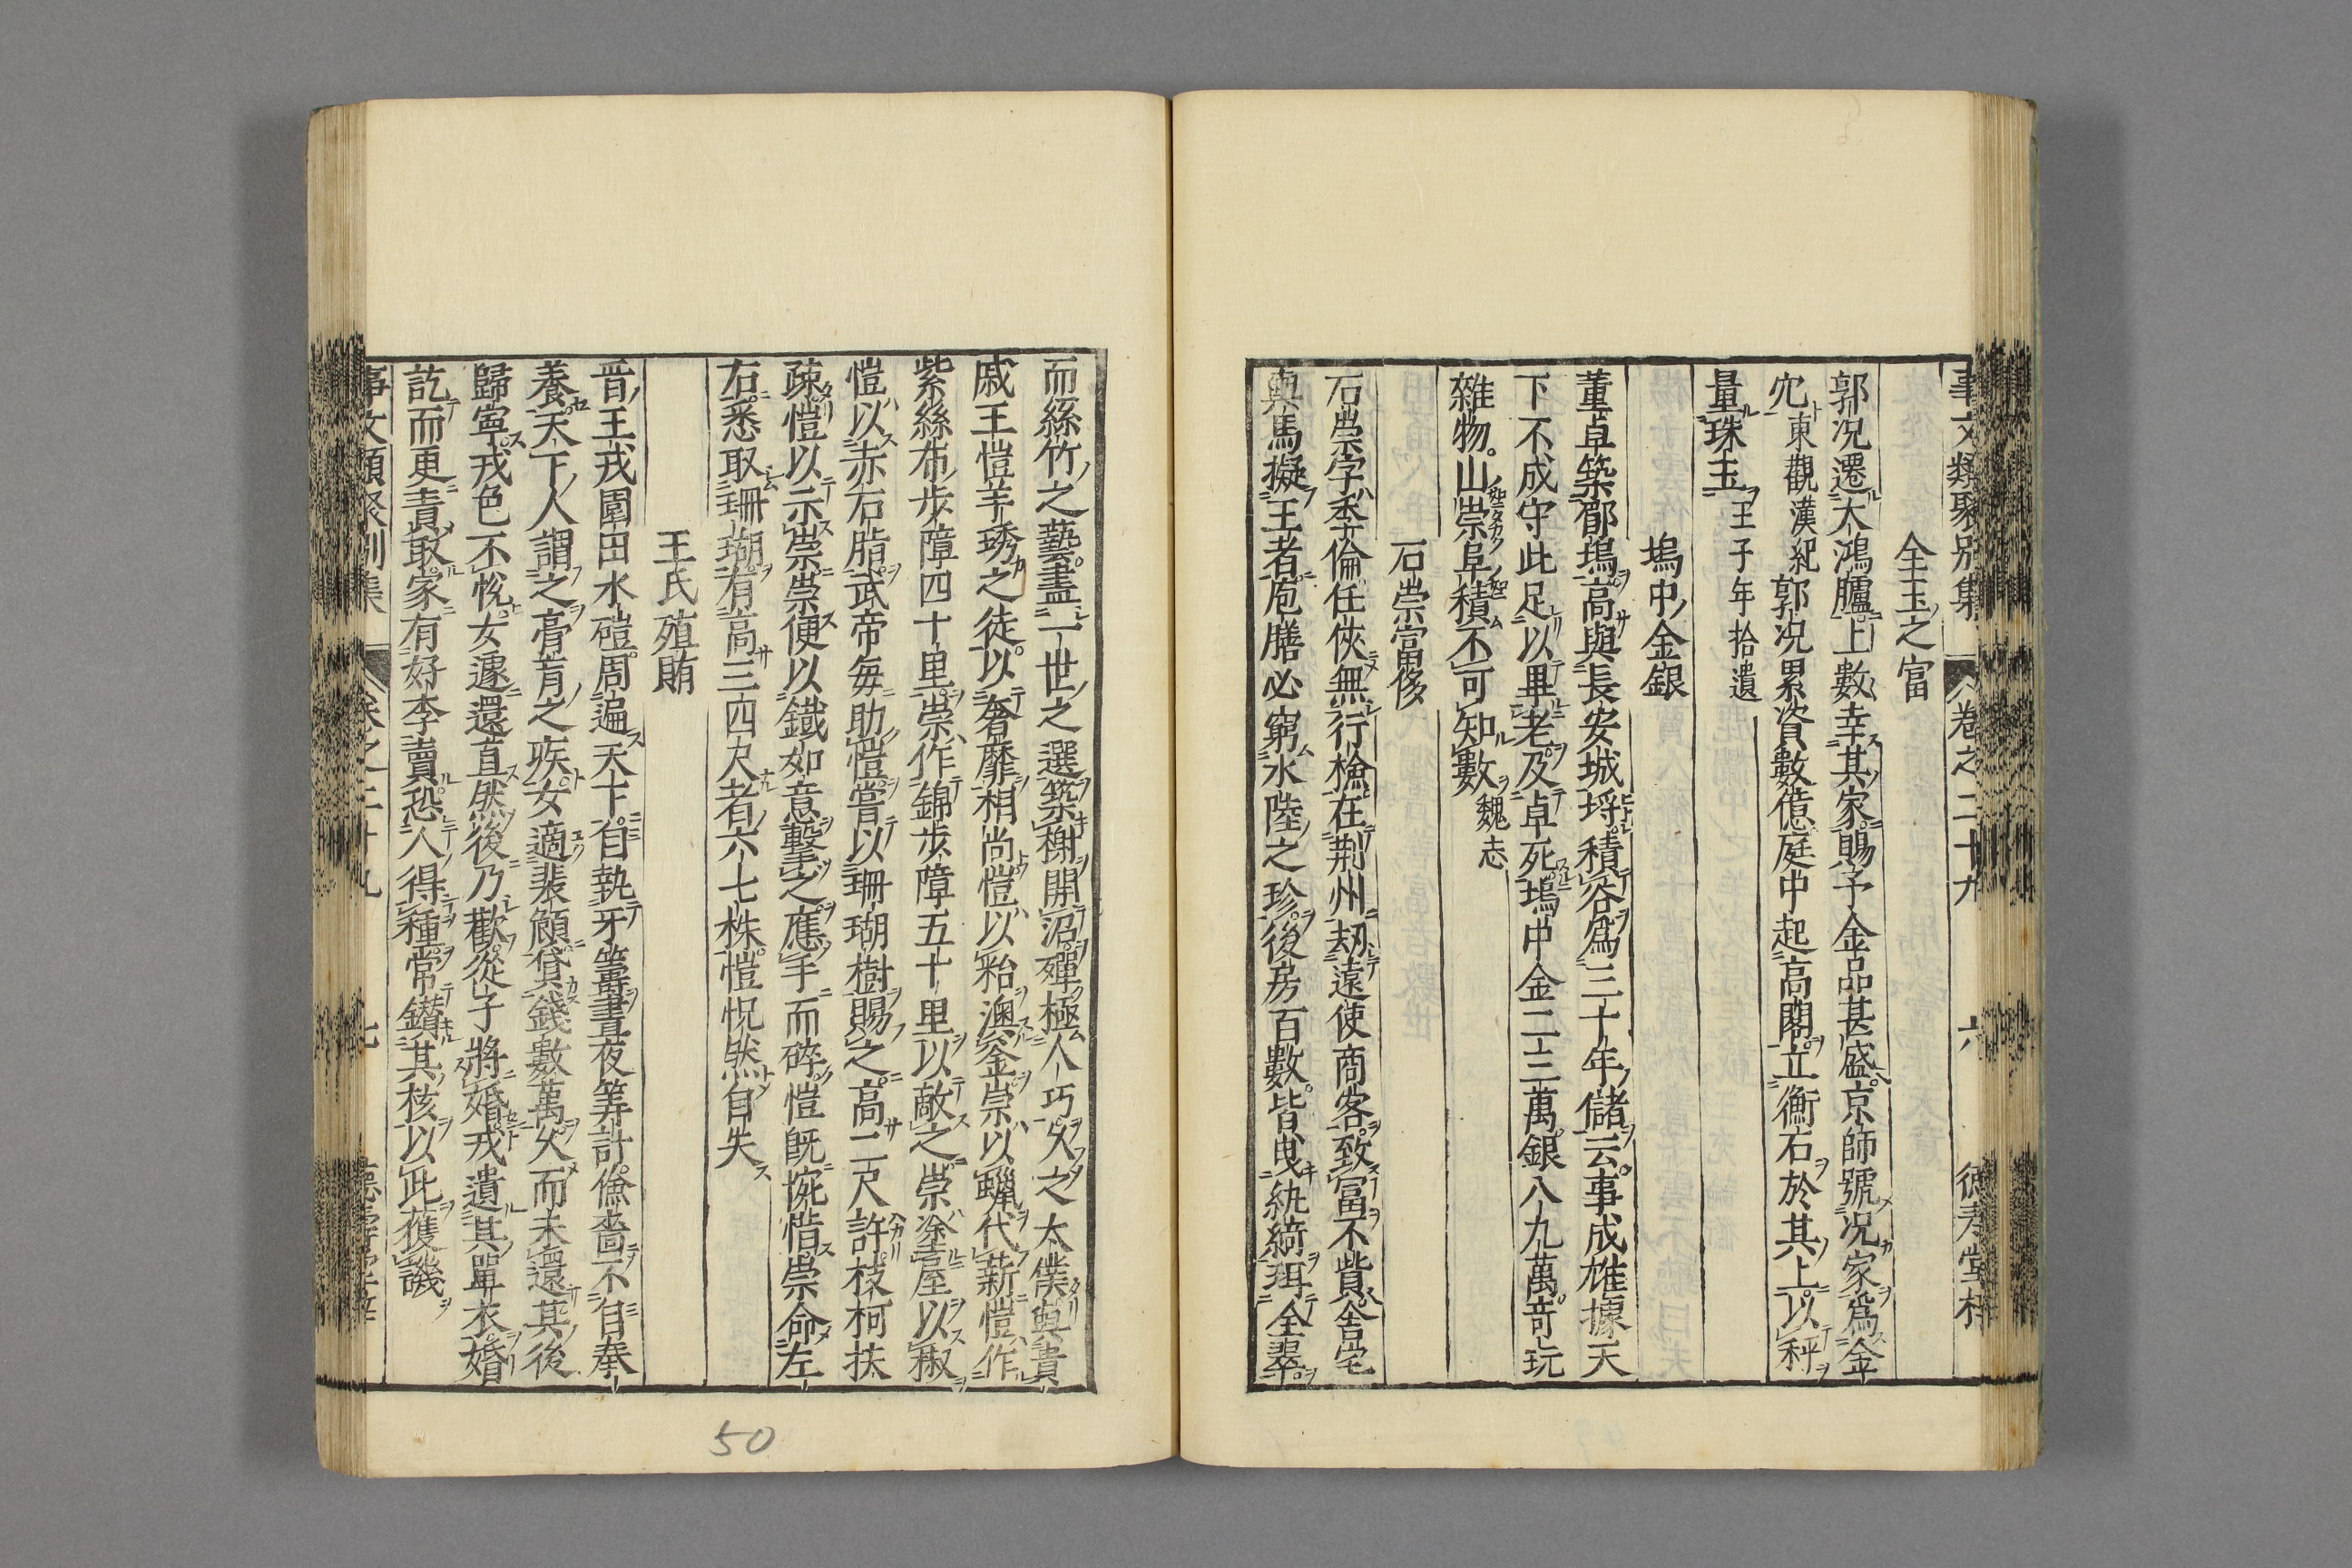 事文類聚別集 卷之二十九 六 德壽堂梓
金玉之富
郭况遷大鴻臚上數幸其家賜予金品甚盛京師號况家爲金
穴東觀漢紀郭况累資數億庭中起高閣立衡石於其上以秤
量珠玉王子年拾遺
塢中金銀
董卓築郿塢高與長安城埒積谷爲三十年儲云事成雄據天
下不成守此足以畢老及卓死塢中金二三萬銀八九萬奇玩
雜物山崇阜積不可知數魏志
石崇富侈
石崇字季倫任俠無行檢在荆州劫遠使商客致富不貲舍宅
輿馬擬王者庖膳必窮水陸之珍後房百數皆曳紈綺珥金翠
而絲竹之藝盡一世之選築榭開沼殫極人巧乆之太僕與貴
戚王愷羊琇之徒以奢靡相尚愷以粘澳釜崇以蠟代薪愷作
紫絲布步障四十里崇作錦步障五十里以敵之崇塗屋以椒
愷以赤石脂武帝每助愷嘗以珊瑚樹賜之高二尺許枝柯扶
疎愷以示崇崇便以鐵如意擊之應手而碎愷旣惋惜崇命左
右悉取珊瑚有高三四尺者六七株愷怳然自失
王氏殖賄
晋王戎園田水磑周遍天下自執牙籌晝夜筭計儉嗇不自奉
養天下人謂之膏肓之疾女適裴頠貸錢數萬乆而未還其後
歸寧戎色不悅女遽還直然後乃歡從子將婚戎遺其單衣婚
訖而更責取家有好李賣恐人得種常鑽其核以此獲譏
事文類聚別集 卷之二十九 七 德壽堂梓
50